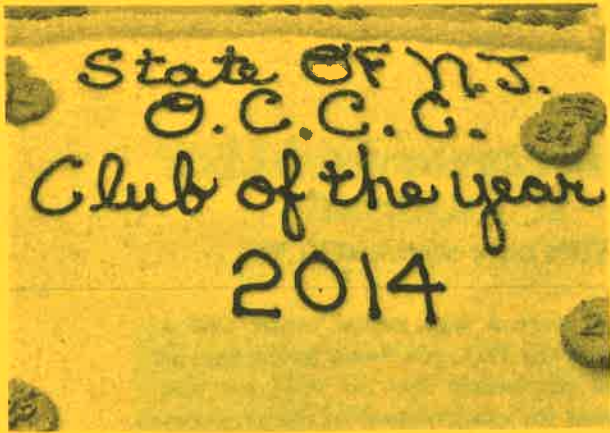 State OF N.J.
O.C.C.C.
Club of the year
2014
25